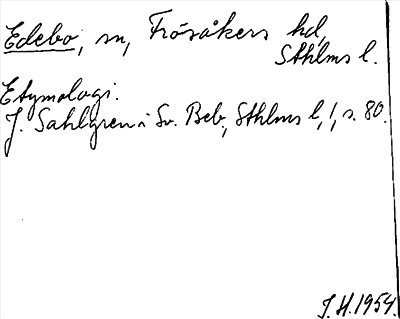 Edebo, sn, Frösåkers hd,
Sthlms l.
Etymologi.
J. Sahlgren i Sv. Beb., Sthlms l, 1, s. 80.
J. H. 1954.